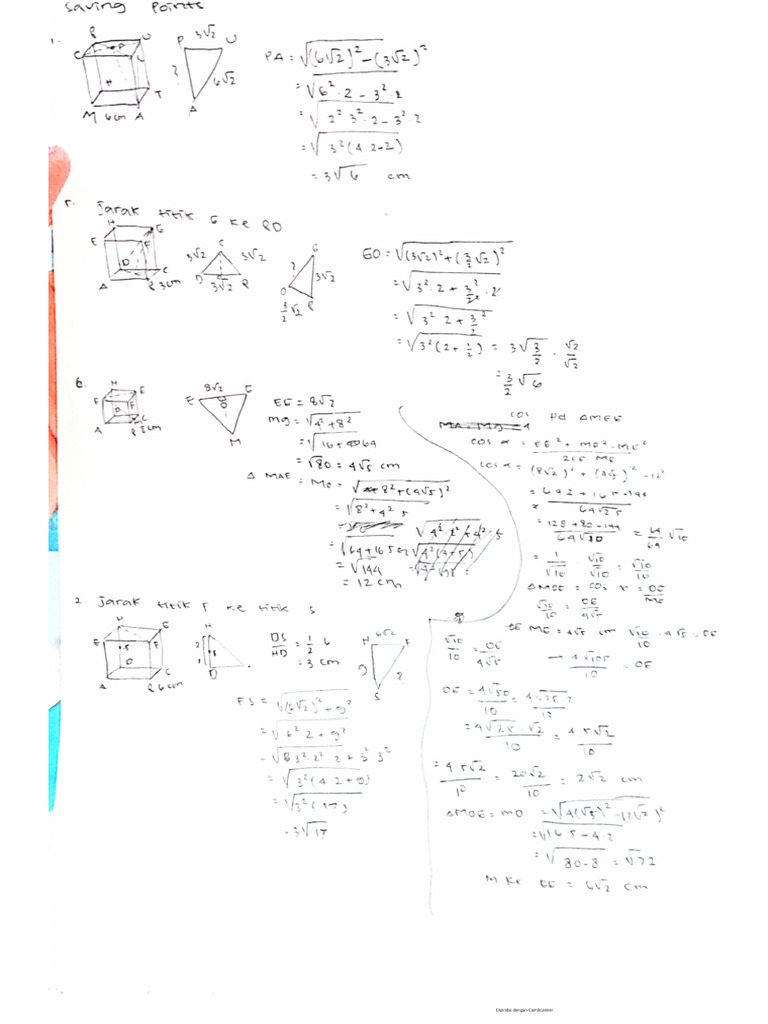 Saving Points
1.
P 3√2 U
? 6√2
A
M 6cm A T
PA = √(6√2)² - (3√2)²
= √6² · 2 - 3² · 2
= √2² 3² · 2 - 3² 2
= √3² (4 2 - 2)
= 3√6 cm
5. Jarak titik G ke BD
H G
E F
D C
A B 3cm
3√2 C 3√2
D 3√2 B
G
? 3√2
O
3/2 √2 B
GO = √(3√2)² + (3/2 √2)²
= √3² · 2 + 3²/2² · 2
= √3² 2 + 3²/2
= √3² (2 + 1/2) = 3√3/2 · √2/√2
= 3/2 √6
6.
8√2
E G
O
M
EG = 8√2
MG = √4² + 8²
= √16 + 64
= √80 = 4√5 cm
Δ MAE = MO = √8² + (4√5)²
= √8² + 4² 5
= √64 + 16 5
= √144
= 12 cm
cos Pd Δ MEG
cos α = EG² + ME² - MG²
2 EG · ME
cos α = (8√2)² + (4√5)² - 12²
= 64 2 + 16 5 - 144
= 128 + 80 - 144 = 64/64 √10
64√10
= 1/√10 · √10/√10 = √10/10
Δ MOE = cos α = OE/ME
√10/10 = OE/4√5
ME = 4√5 cm √10/10 · 4√5 = OE
√10/10 = OE/4√5 → 4√105/10 = OE
OE = 4√50/10 = 4√25
= 4√25 · √2/10 = 4 5√2/10
= 4 5√2/10 = 20√2/10 = 2√2 cm
Δ MOE = MO = √4(√5)² - (2√2)²
= √16 5 - 4 2
= √80 - 8 = √72
M ke EG = 6√2 cm
2. Jarak titik F ke titik S
H G
E F
S
D C
A B 6cm
H
2 S
1
D
DS/HD = 1/2 6
= 3 cm
H 6√2 F
9 ?
S
FS = √(6√2)² + 9²
= √6² 2 + 9²
= √3² · 2² · 2 + 3² 3²
= √3² (4 2 + 9)
= √3² (17)
= 3√17
Dipindai dengan CamScanner